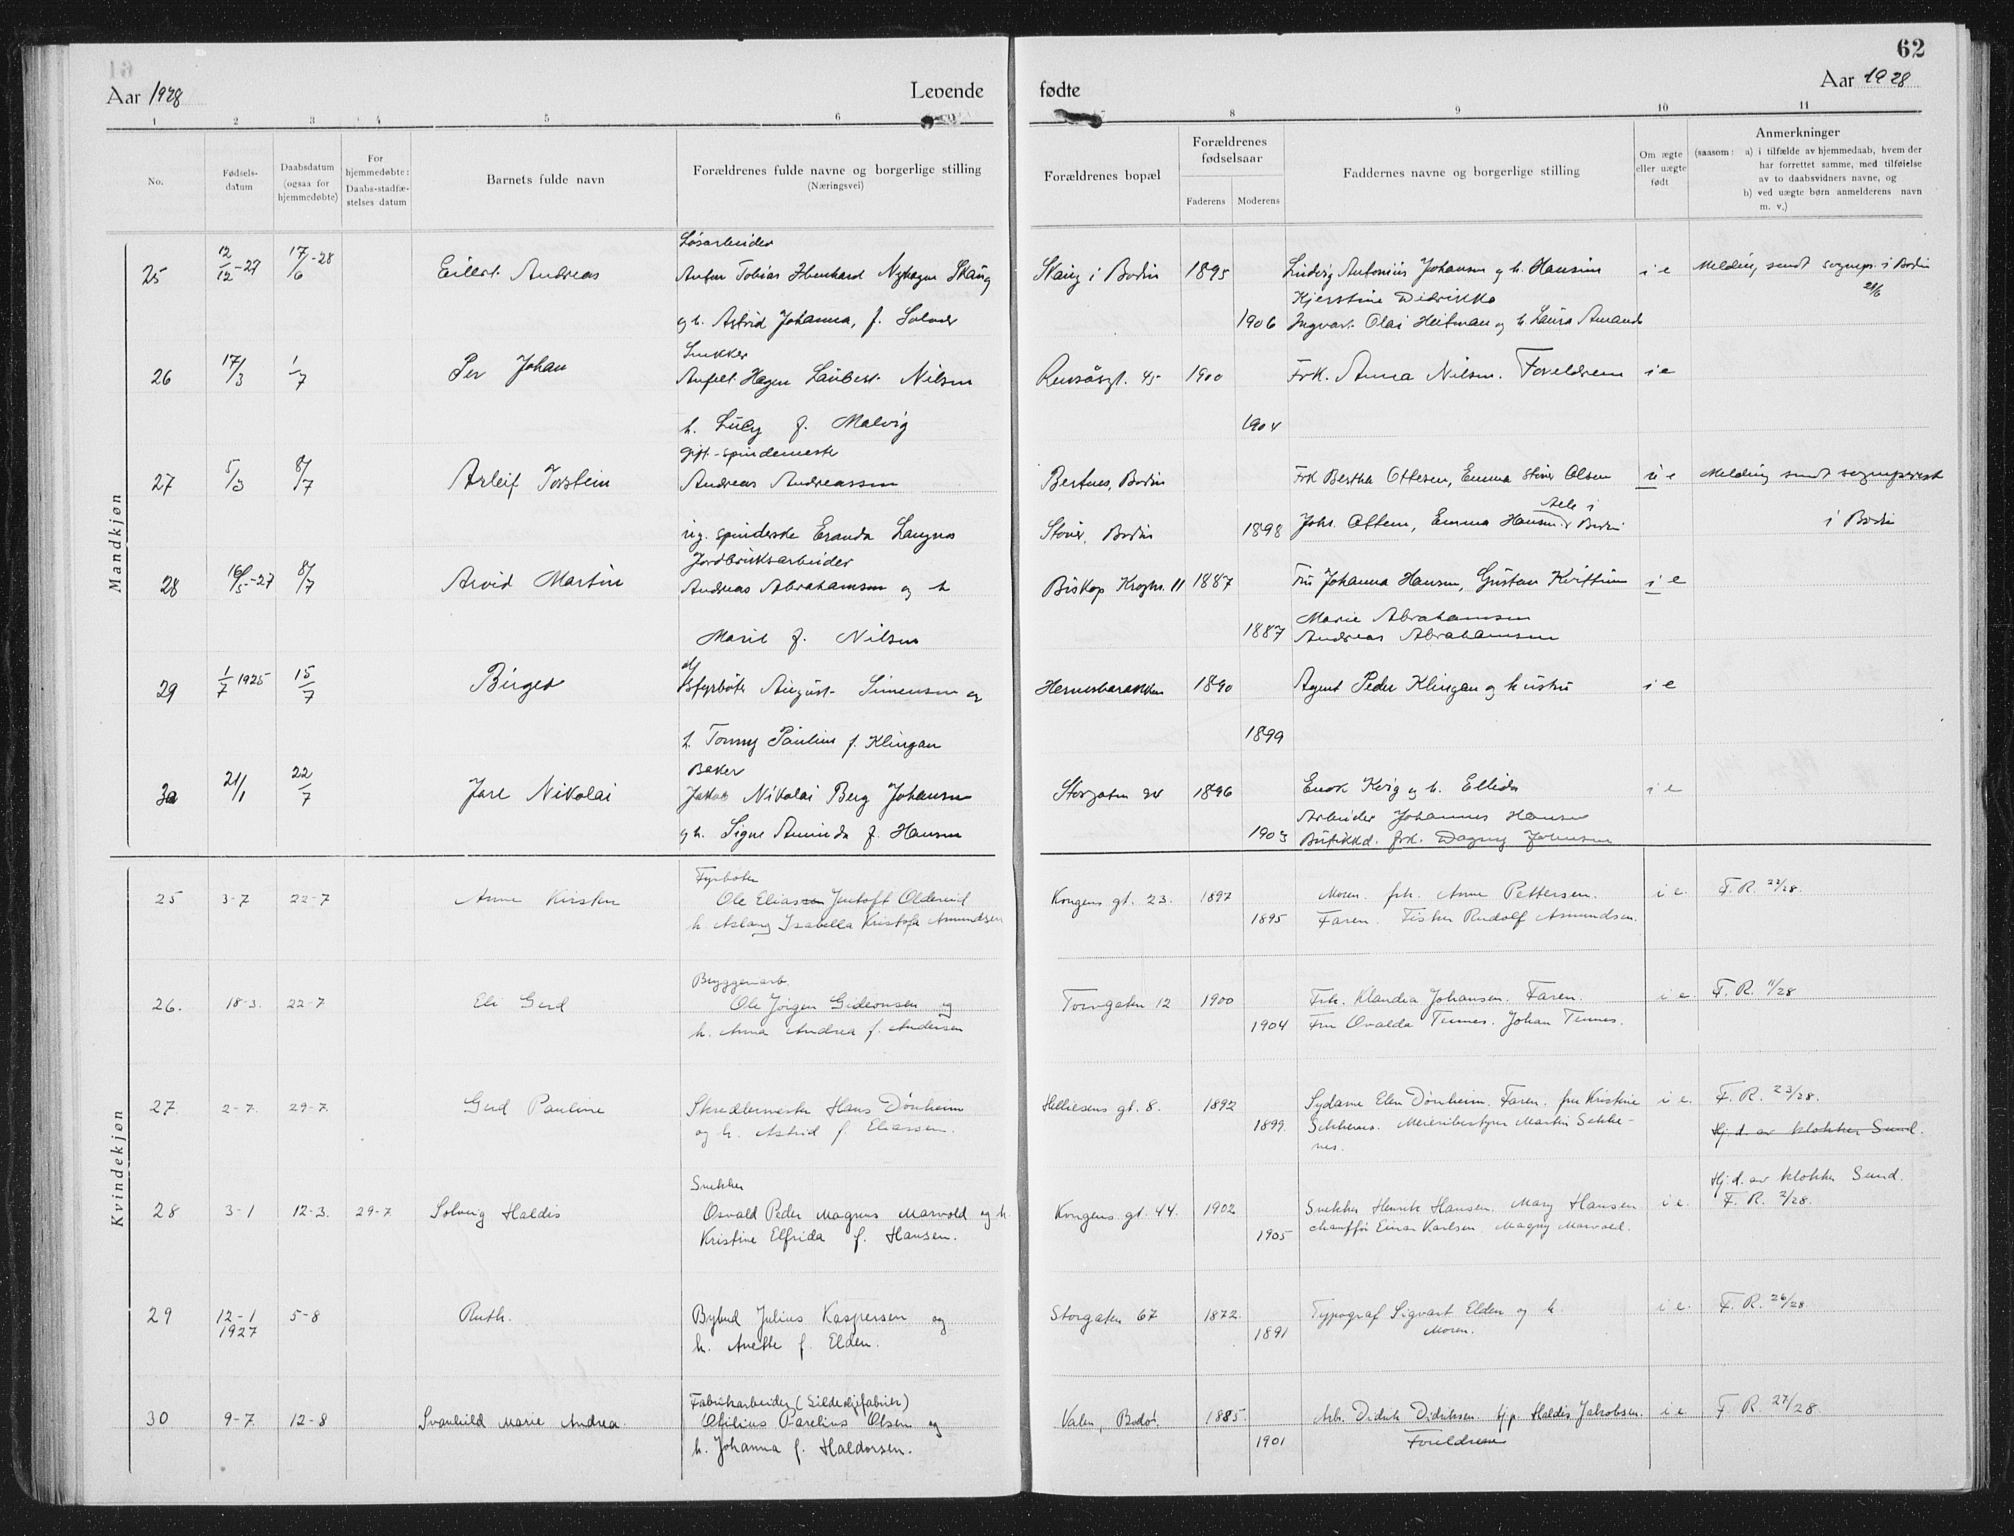 61
62
Aar 1928
Levende
fødte
Aar 1928
1 2 3 4 5 6 8 9 10 11
No.
Fødsels-
datum
Daabsdatum
(ogsaa for
hjemmedøbte)
For
hjemmedøbte:
Daabs-stadfæ-
stelses datum
Barnets fulde navn
Forældrenes fulde navne og borgerlige stilling
(Næringsvei)
Forældrenes bopæl
Forældrenes
fødselsaar
Faderens
Moderens
Faddernes navne og borgerlige stilling
Om ægte
eller uægte
født
Anmerkninger
(saasom: a) i tilfælde av hjemmedaab, hvem der
har forrettet samme, med tilføielse
av to daabsvidners navne, og
b) ved uægte børn anmelderens navn
m. v.)
Mandkjøn
Løsarbeider
25 12/12-27 17/6-28 Eilert Andreas Anton Tobias Skaug Skaug i Bodin 1895 Ludvig Antonius Johansen og h. Hansine i e Melding sendt sognepr. i Bodin
21/6
Kjerstine Didrikke
og h. Astrid Johanna, f. 1906 Ingvart Olai Heitman og h. Laura Amanda
Snekker
26 17/3 1/7 Per Johan Hagen Laubert Nilsen 1900 Frk. Anna Nilsen. Foreldrene i e
h. Lucy f. Malvig 1904
gift spindemester
27 5/3 8/7 Arleif Torstein Andreas Andreassen Bertnes, Bodin Frk Bertha Ottesen, Emma Olsen u e Melding sendt sogneprest
ug. spinderske Bodin 1898 Johs. Ottesen, Emma Hansen Bodin i Bodin
Jordbruksarbeider
28 16/5-27 8/7 Arvid Martin Andreas Abrahamsen og h Biskop Kroghs. 11 1887 Fru Johanna Hansen, Gustav i e
Marit f. Nilsen 1887 Marie Abrahamsen
Andreas Abrahamsen
29 1/7 1925 15/7 Birger fyrbøter August Simensen og Hernesbarakken 1890 Agent Peder Klingan og hustru i e
h. Tonny Pauline f. Klingan 1899
Baker
30 21/1 22/7 Jare Nikolai Jakob Nikolai Berg Johansen Storgaten 1896 Enok Kvig og h. Ellida i e
og h. Signe Aminda f. Hansen 1903 Arbeider Johannes Hansen
Butikkd. frk. Dagny Johansen
Kvindekjøn
Fyrbøter
25 3-7 22-7 Anne Kirsten Ole Elias Jentoft Oldereid Kongens gt. 23. 1897 Moren. frk. Anne Pettersen. i e. F. R. 22/28.
h. Aslaug Isabella Kristofa Amundsen 1895 Faren. Fisker Rudolf Asmundsen.
Bryggerarb.
26. 18-3. 22-7 Eli Gerd Ole Jørgen Gideonsen og Torvgaten 12 1900 Frk. Klaudia Johansen. Faren. i e F. R. 11/28
h. Anna Andrea f. Andersen 1904 Fru Ovalda Tennes. Johan Tennes.
27 2-7. 29-7. Gerd Pauline Skreddermester Hans Dønheim Helliesens gt. 8. 1892 Sydame Elen Dønheim. Faren. fru Kristine i e. F. R. 23/28.
og h. Astrid f. Eliassen. 1899. Meieribestyrer Martin
Hj d. av klokker Sund.
Snekker
28 3-1 12-3. 29-7 Solveig Haldis Osvald Peder Magnus Marvold og h. Kongens gt. 44. 1902 Snekker Henrik Hansen. Mary Hansen i e. Hj d. av klokker Sund.
F. R. 2/28.
Kristine Elfrida f. Hansen. 1905 chauffør Einar Karlsen. Magny Marvold.
29 12-1
1927 5-8 Ruth. Bybud Julius Kaspersen og Storgaten 67 1872. Typograf Sigvart Elden og h. i e. F. R. 26/28
h. Anette f. Elden. 1891 Moren.
Fabrikarbeider (Sildoljefabrik)
30 9-7. 12-8 Svanhild Marie Andrea. Otilius Parelius Olsen og Valen, Bodø. 1885. Arb. Didrik Didriksen. Hj p. Haldis Jakobsen. i e. F. R. 27/28
h. Johanna f. Haldorsen. 1901 Foreldrene